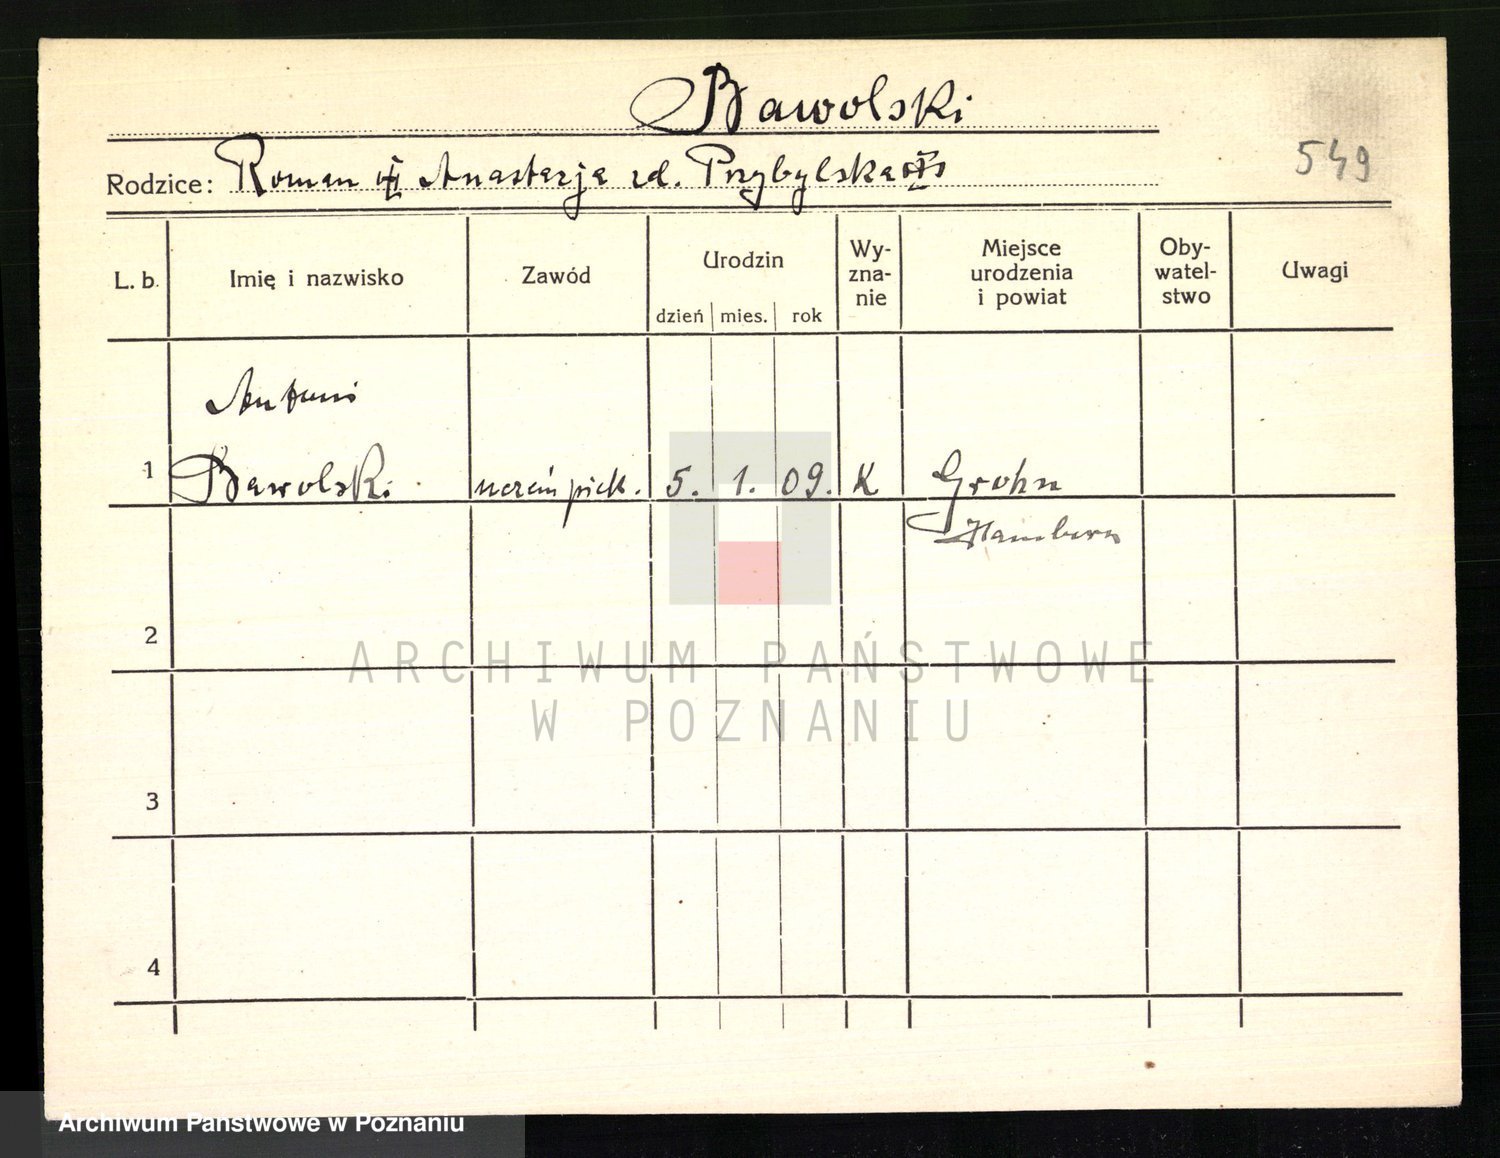 Bawolski
Rodzice: Roman i Anastazja zd. Przybylska
549
L. b. Imię i nazwisko Zawód Urodzin dzień mies. rok Wy-zna-nie Miejsce urodzenia i powiat Oby-watel-stwo Uwagi
Antoni
1 Bawolski uczeń piek. 5. 1. 09. K Grohn
Hamburg
2
ARCHIWUM PAŃSTWOWE
W POZNANIU
3
4
Archiwum Państwowe w Poznaniu